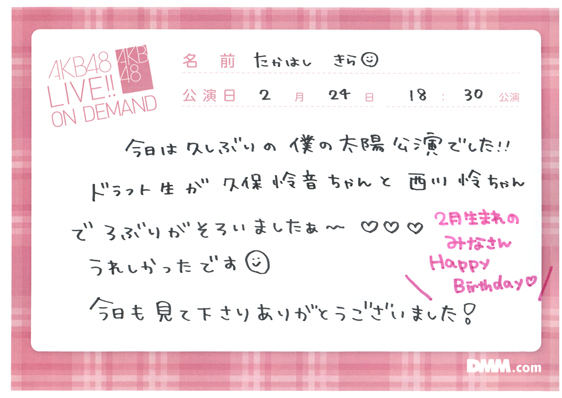 AKB48
LIVE!!
ON DEMAND
AKB
48
名前 たかはし きら
公演日 2月24日 18:30公演
今日は久しぶりの僕の太陽公演でした!!
ドラフト生が久保怜音ちゃんと西川怜ちゃん
でろぶりがそろいましたぁ〜♡♡♡
うれしかったです
2月生まれの
みなさん
Happy
Birthday♡
今日も見て下さりありがとうございました!
DMM.com